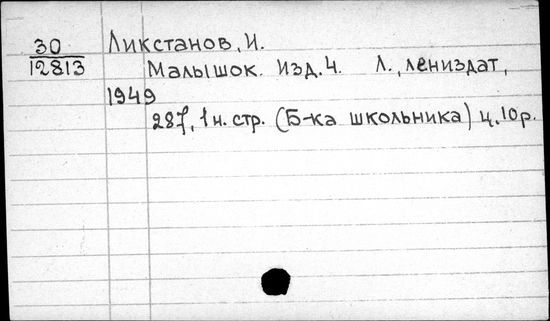 30
12813
Ликстанов, И.
Малышок. Изд.4. Л., Лениздат,
1949
287, 1 н. стр. (Б-ка школьника) ц. 10 р.